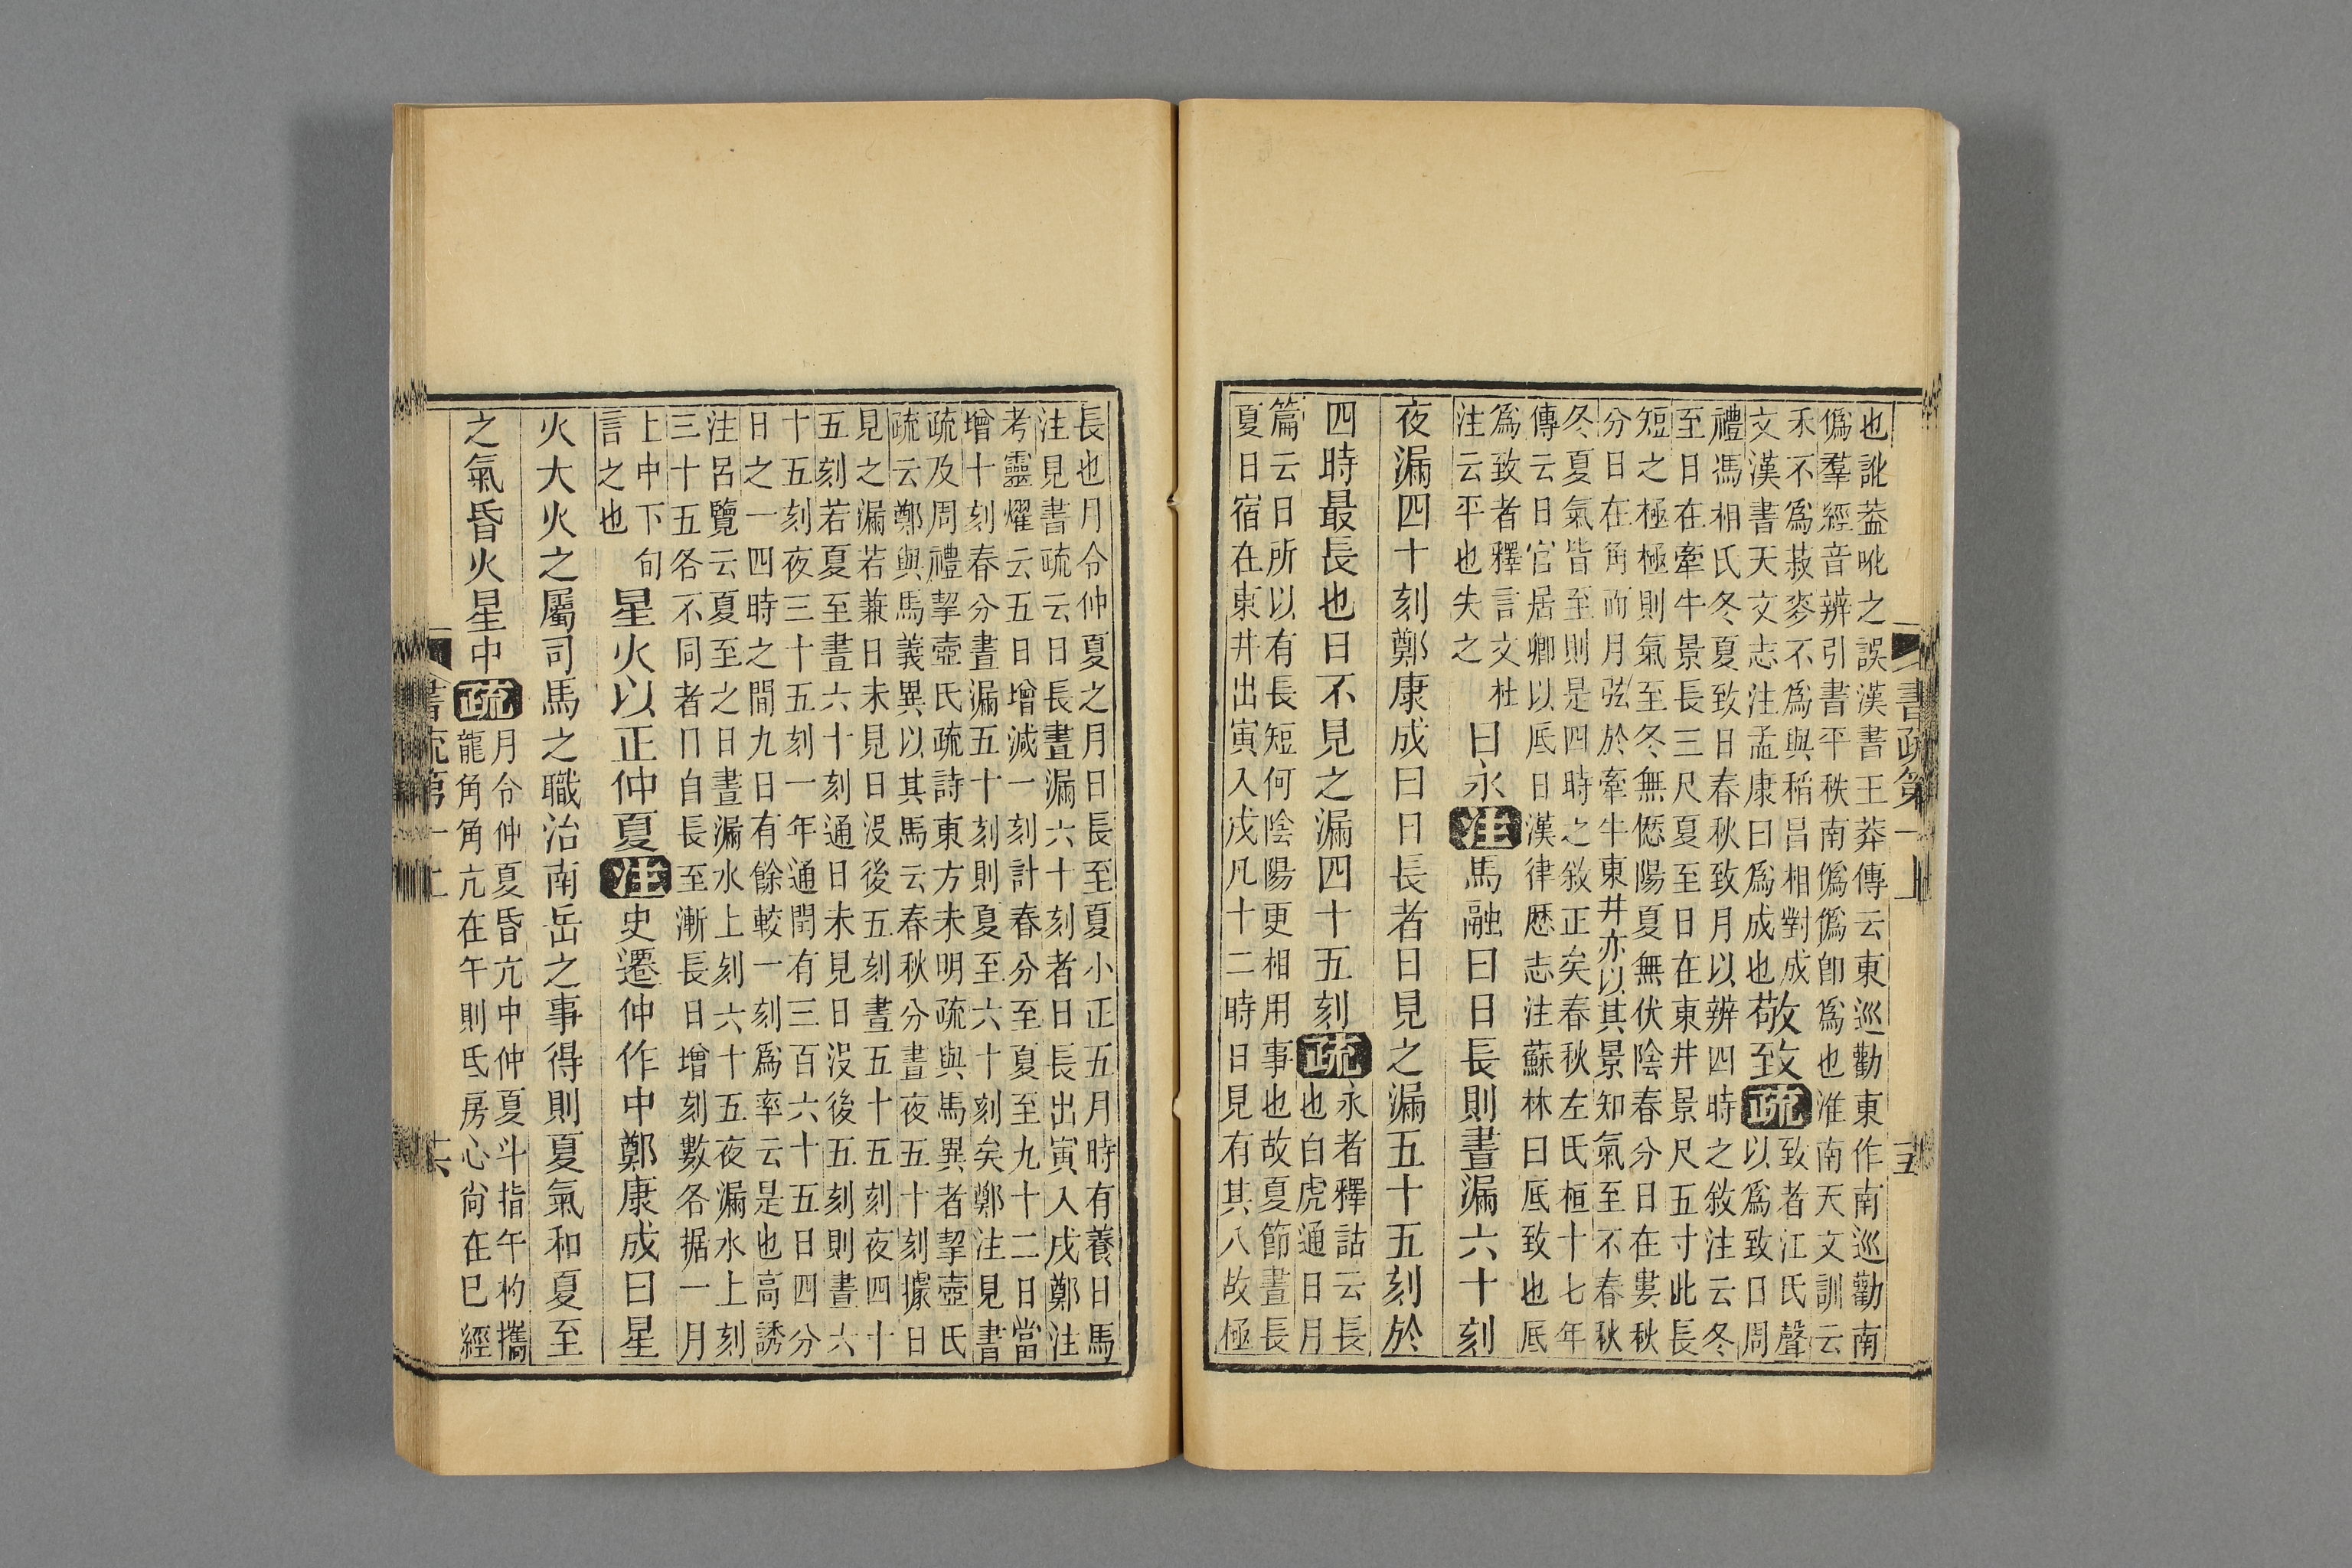 也訛葢吪之誤漢書王莽傳云東巡勸東作南巡勸南
僞羣經音辨引書平秩南僞僞卽爲也淮南天文訓云
禾不爲菽麥不爲與稻昌相對成
文漢書天文志注孟康曰爲成也
敬致
疏
致者江氏聲
以爲致日周
禮馮相氏冬夏致日春秋致月以辨四時之敘注云冬
至日在牽牛景長三尺夏至日在東井景尺五寸此長
短之極極則氣至冬無愆陽夏無伏陰春分日在婁秋
分日在角而月弦於牽牛東井亦以其景知氣至不春秋
冬夏氣皆至則是四時之敘正矣春秋左氏桓十七年
傳云日官居卿以厎日漢律歷志注蘇林曰厎致也厎
爲致者釋言文杜
注云平也失之
日永
注
馬融曰日長則晝漏六十刻
夜漏四十刻鄭康成曰日長者日見之漏五十五刻於
四時最長也日不見之漏四十五刻
疏
永者釋詁云長
也白虎通日月
篇云日所以有長短何陰陽更相用事也故夏節晝長
夏日宿在東井出寅入戌凡十二時日見有其八故極
書疏第一上
十五
長也月令仲夏之月日長至夏小正五月時有養日馬
注見書疏云日長晝漏六十刻者日長出寅入戌鄭注
考靈燿云五日增減一刻計春分至夏至九十二日當
增十刻春分晝漏五十刻則夏至六十刻矣鄭注見書
疏及周禮挈壺氏疏詩東方未明疏與馬異者挈壺氏
疏云鄭與馬義異以其馬云春秋分晝夜五十刻據日
見之漏若兼日未見日没後五刻晝五十五刻夜四十
五刻若夏至晝六十刻通日未見日没後五刻則晝六
十五刻夜三十五刻一年通閏有三百六十五日四分
日之一四時之間九日有餘較一刻爲率云是也高誘
注呂覽云夏至之日晝漏水上刻六十五夜漏水上刻
三十五各不同者日自長至漸長日增刻數各据一月
上中下旬
言之也
星火以正仲夏
注
史遷仲作中鄭康成曰星
火大火之屬司馬之職治南岳之事得則夏氣和夏至
之氣昏火星中
疏
月令仲夏昏亢中仲夏斗指午杓攜
龍角角亢在午則氐房心尙在巳經
書疏第一上
十六